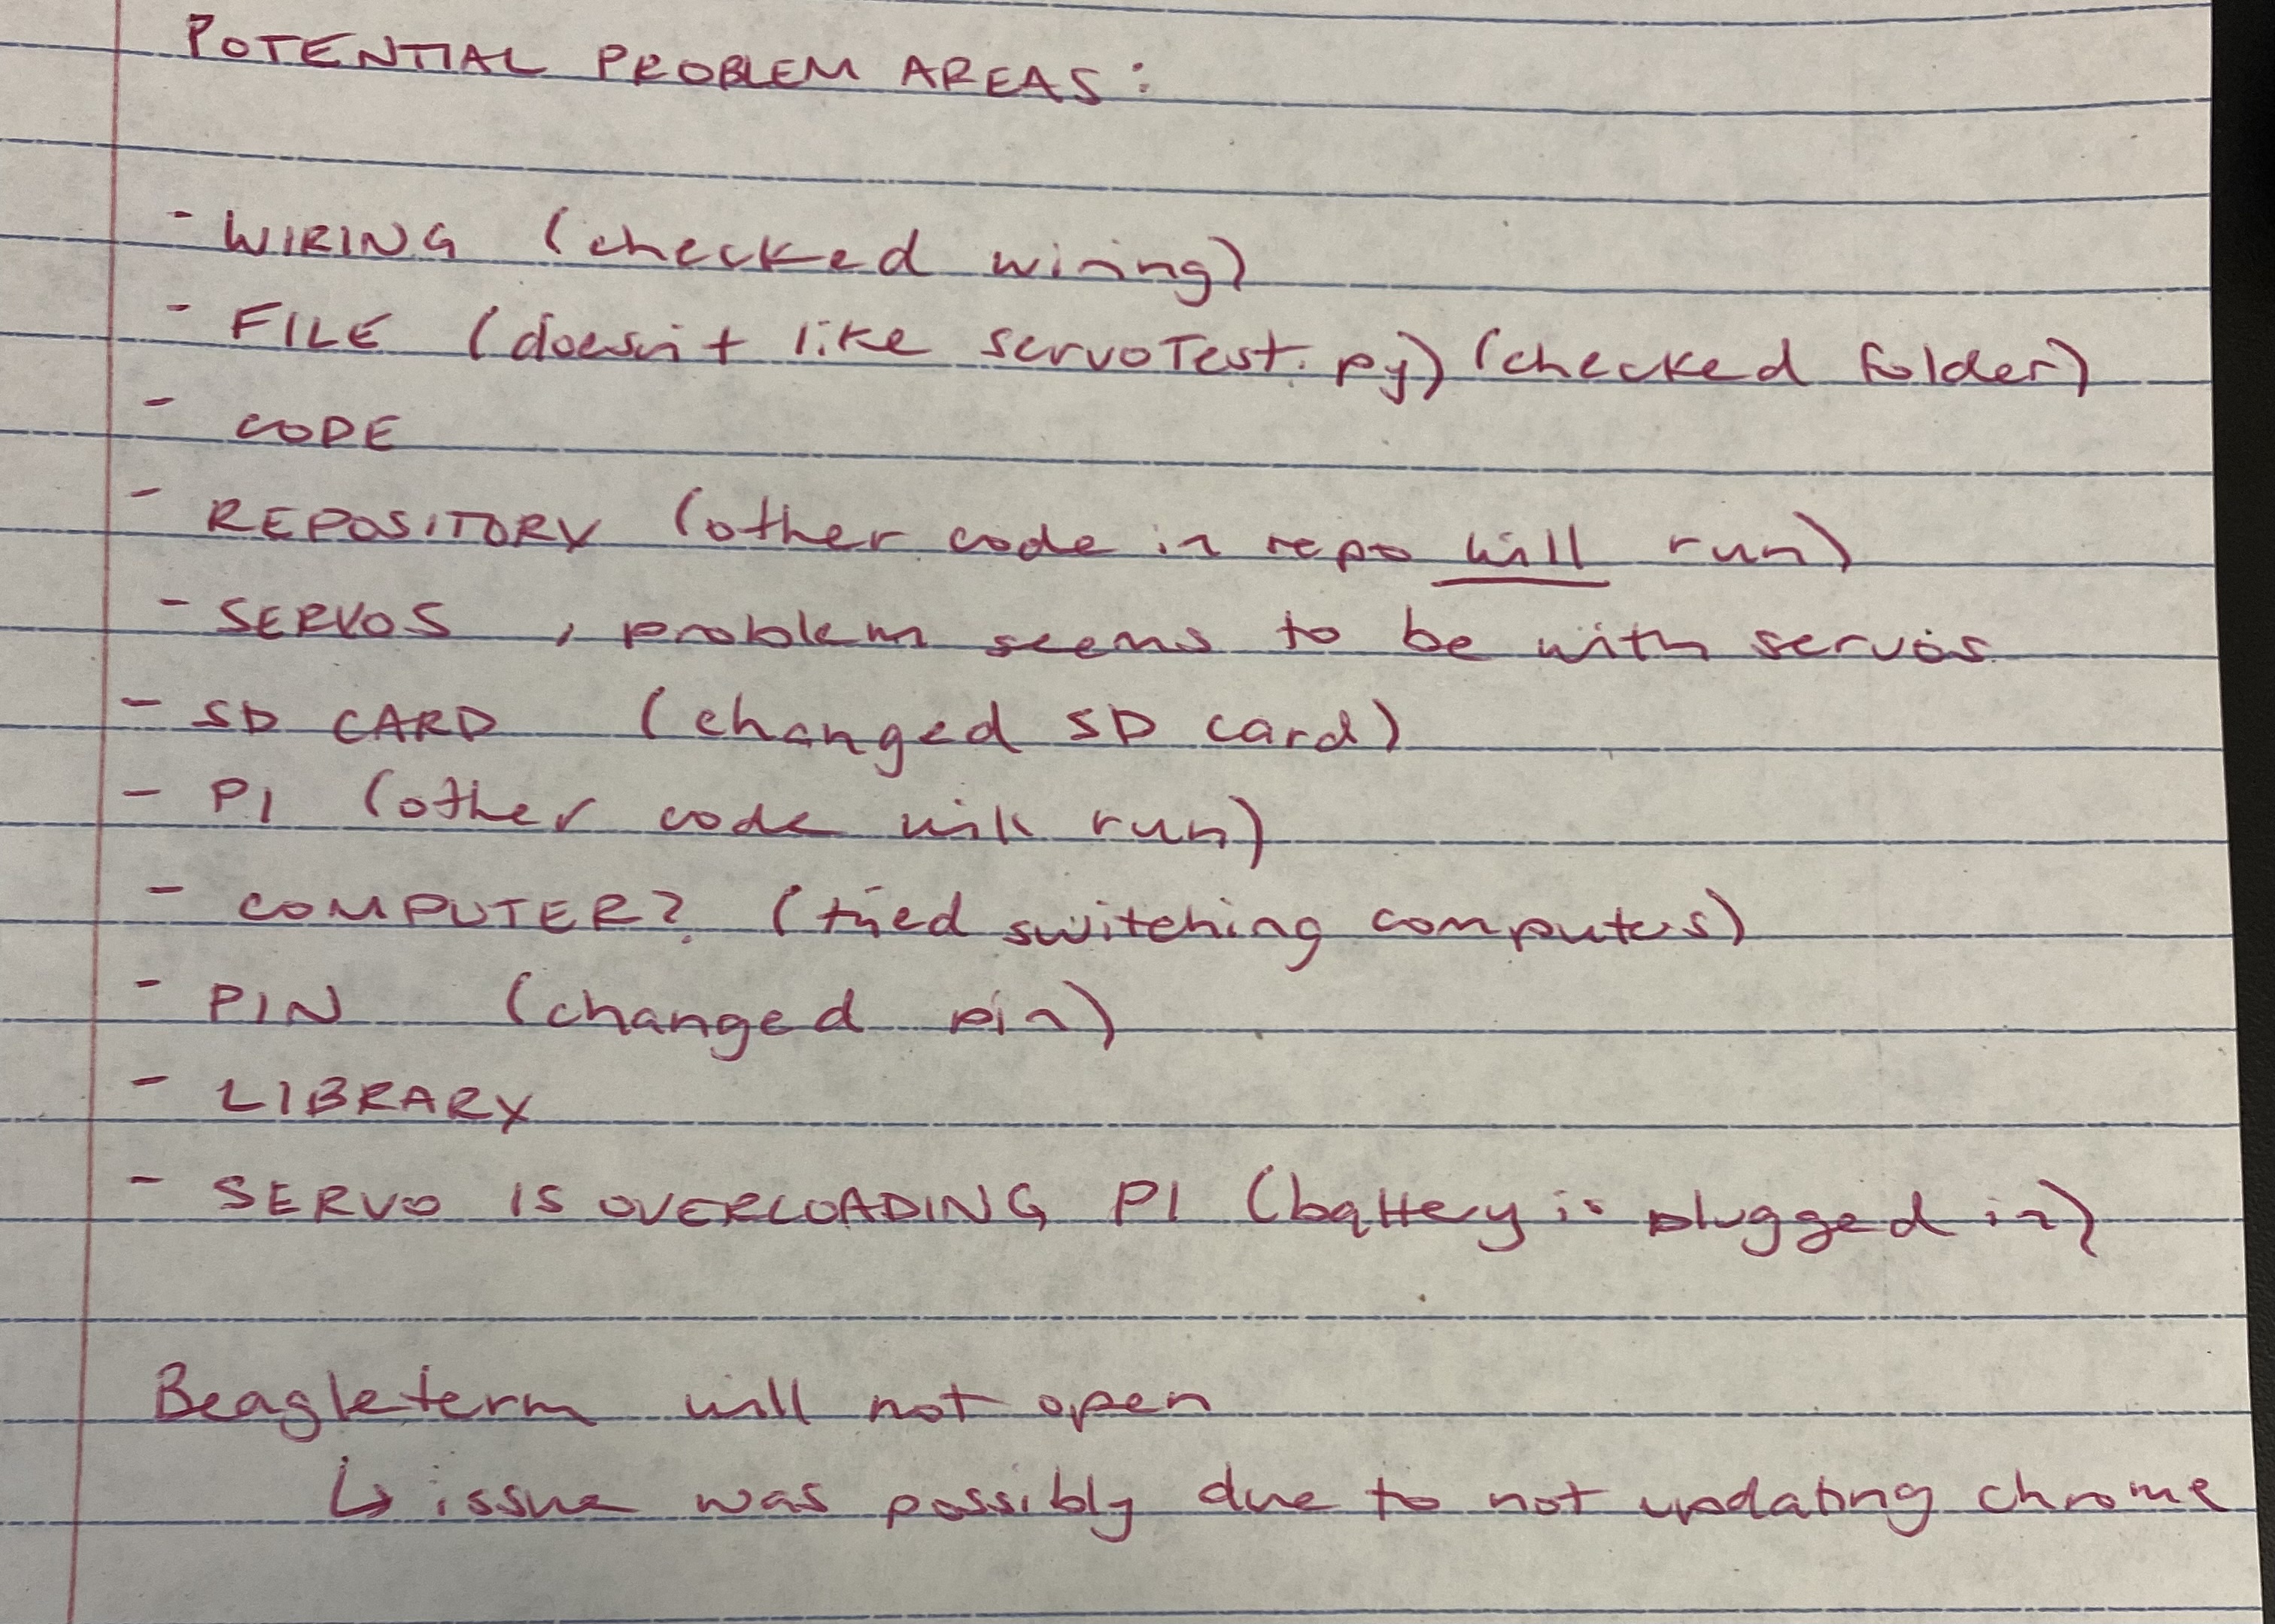 POTENTIAL PROBLEM AREAS:
- WIRING (checked wiring)
- FILE (doesn't like servoTest.py) (checked folder)
- CODE
- REPOSITORY (other code in repo will run)
- SERVOS, problem seems to be with servos
- SD CARD (changed SD card)
- PI (other code will run)
- COMPUTER? (tried switching computers)
- PIN (changed pin)
- LIBRARY
- SERVO IS OVERLOADING PI (battery is plugged in)
Beagleterm will not open
↳ issue was possibly due to not updating chrome